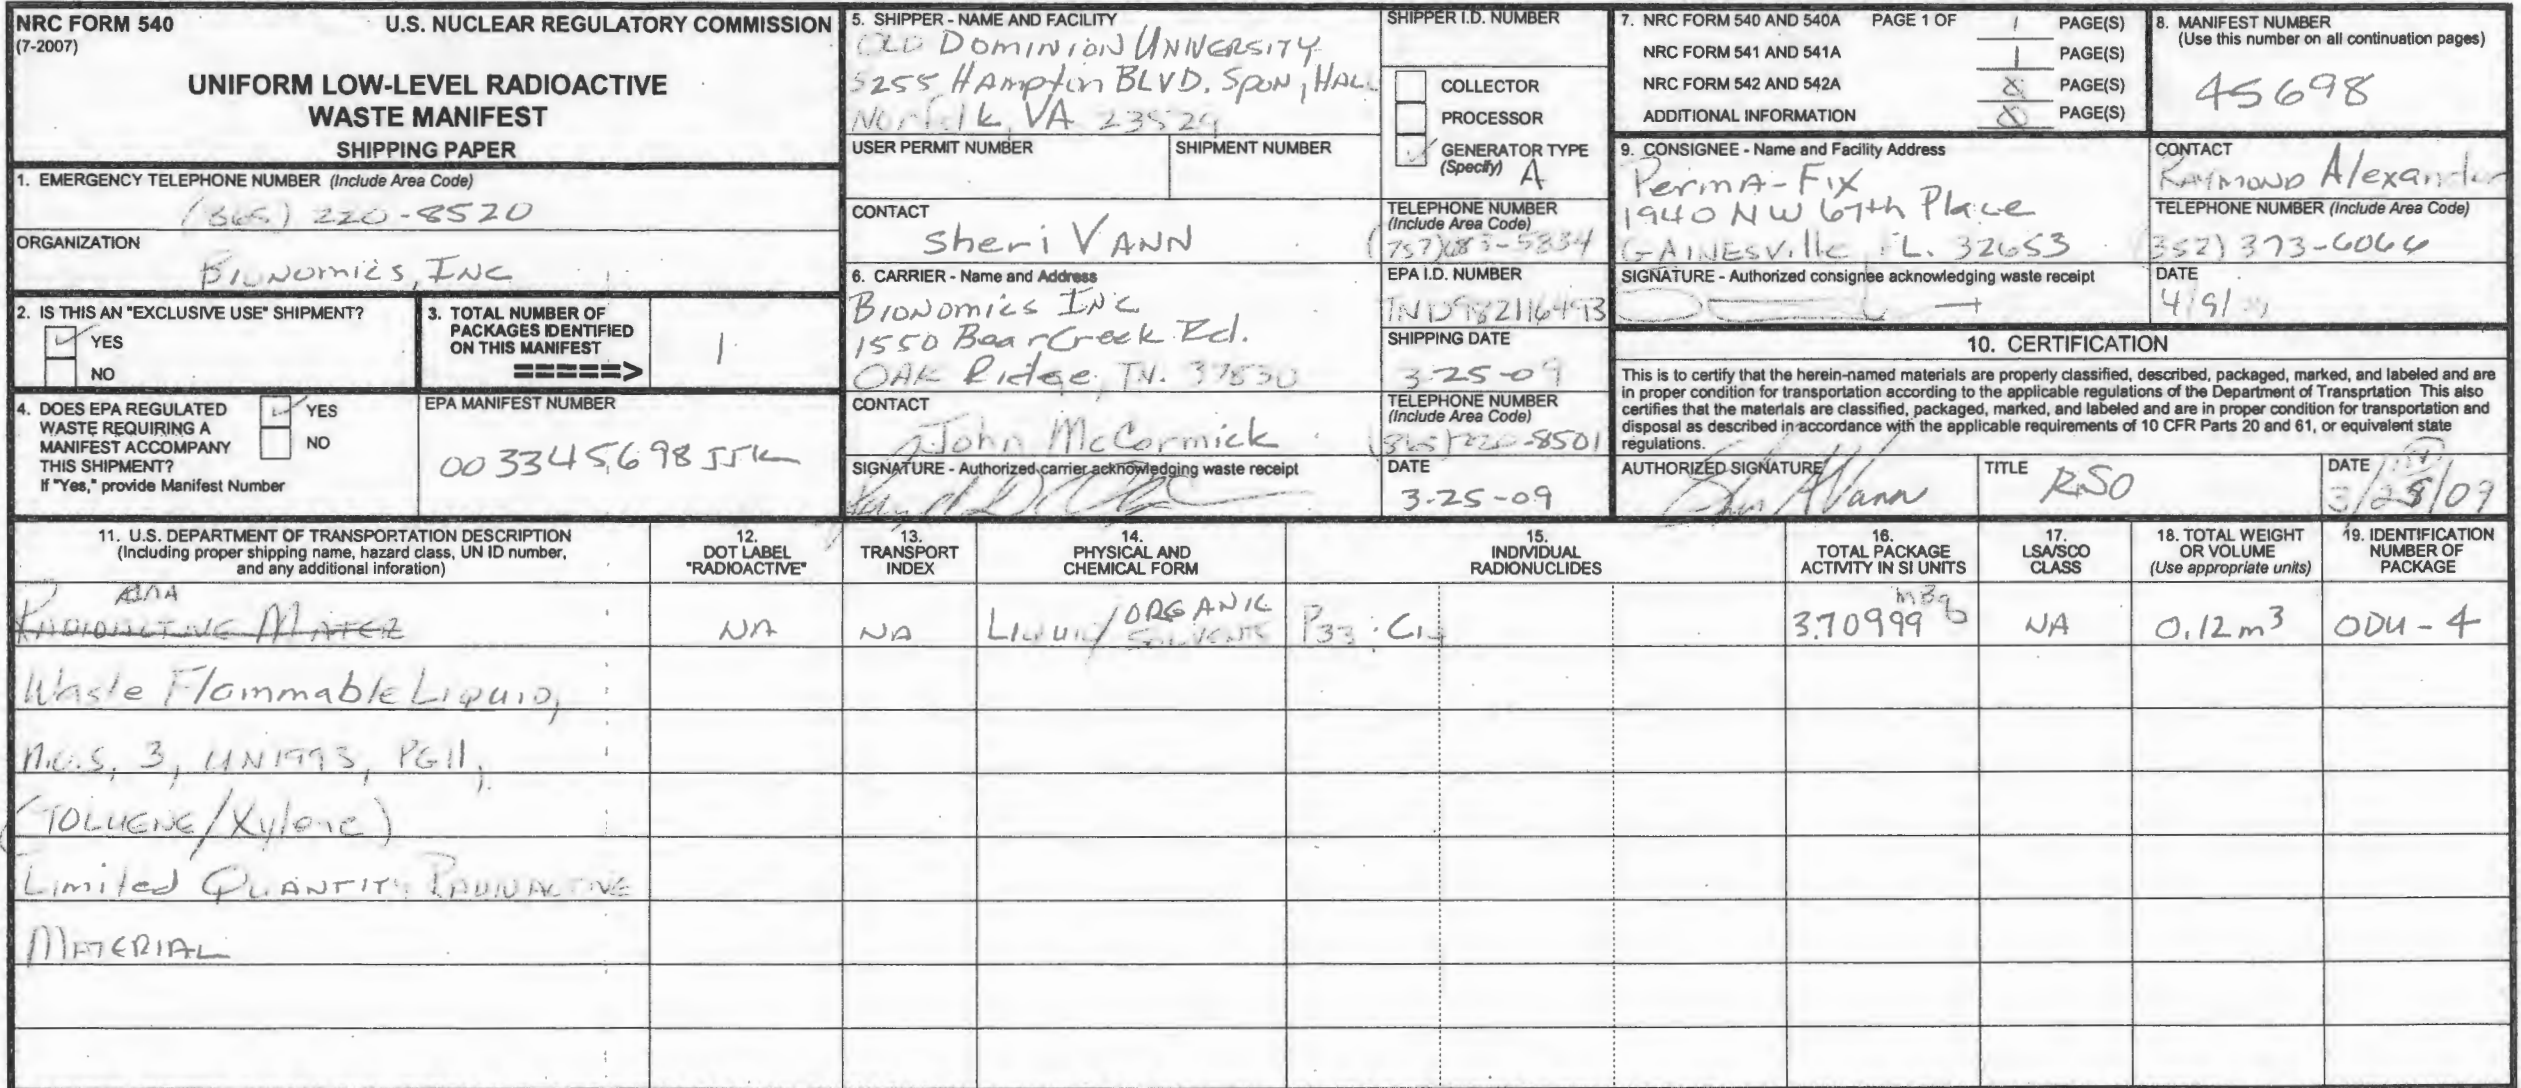 NRC FORM 540
(7-2007)
U.S. NUCLEAR REGULATORY COMMISSION
UNIFORM LOW-LEVEL RADIOACTIVE
WASTE MANIFEST
SHIPPING PAPER
1. EMERGENCY TELEPHONE NUMBER (Include Area Code)
(865) 220-8520
ORGANIZATION
BIONOMICS, INC
2. IS THIS AN "EXCLUSIVE USE" SHIPMENT?
YES
NO
3. TOTAL NUMBER OF
PACKAGES IDENTIFIED
ON THIS MANIFEST
=====>
1
4. DOES EPA REGULATED
WASTE REQUIRING A
MANIFEST ACCOMPANY
THIS SHIPMENT?
If "Yes," provide Manifest Number
YES
NO
EPA MANIFEST NUMBER
003345698JJK
5. SHIPPER - NAME AND FACILITY
OLD DOMINION UNIVERSITY
5255 HAMPton BLVD. SPON, HALL
Norfolk, VA 23529
SHIPPER I.D. NUMBER
COLLECTOR
PROCESSOR
GENERATOR TYPE
(Specify) A
USER PERMIT NUMBER
SHIPMENT NUMBER
CONTACT
Sheri VANN
TELEPHONE NUMBER
(Include Area Code)
(757)683-5334
6. CARRIER - Name and Address
BIONOMICS INC
1550 Bear Creek Rd.
OAK Ridge, TN. 37830
EPA I.D. NUMBER
TND982116493
SHIPPING DATE
3-25-09
CONTACT
John McCormick
TELEPHONE NUMBER
(Include Area Code)
(865)220-8501
SIGNATURE - Authorized carrier acknowledging waste receipt
DATE
3-25-09
7. NRC FORM 540 AND 540A PAGE 1 OF 1 PAGE(S)
NRC FORM 541 AND 541A 1 PAGE(S)
NRC FORM 542 AND 542A PAGE(S)
ADDITIONAL INFORMATION PAGE(S)
8. MANIFEST NUMBER
(Use this number on all continuation pages)
45698
9. CONSIGNEE - Name and Facility Address
PermA-Fix
1940 NW 67th Place
GAINESville, FL. 32653
CONTACT
RAYMOND Alexander
TELEPHONE NUMBER (Include Area Code)
352) 373-6066
SIGNATURE - Authorized consignee acknowledging waste receipt
DATE
10. CERTIFICATION
This is to certify that the herein-named materials are properly classified, described, packaged, marked, and labeled and are
in proper condition for transportation according to the applicable regulations of the Department of Transprtation This also
certifies that the materials are classified, packaged, marked, and labeled and are in proper condition for transportation and
disposal as described in accordance with the applicable requirements of 10 CFR Parts 20 and 61, or equivalent state
regulations.
AUTHORIZED SIGNATURE
Vann
TITLE
RSO
DATE
3/25/09
11. U.S. DEPARTMENT OF TRANSPORTATION DESCRIPTION
(Including proper shipping name, hazard class, UN ID number,
and any additional inforation)
12.
DOT LABEL
"RADIOACTIVE"
13.
TRANSPORT
INDEX
14.
PHYSICAL AND
CHEMICAL FORM
15.
INDIVIDUAL
RADIONUCLIDES
16.
TOTAL PACKAGE
ACTIVITY IN SI UNITS
17.
LSA/SCO
CLASS
18. TOTAL WEIGHT
OR VOLUME
(Use appropriate units)
19. IDENTIFICATION
NUMBER OF
PACKAGE
RADIOACTIVE MATER
NA
NA
LIQUID/ORGANIC SOLVENTS
P33 · C14
3.70999 mBq
NA
0.12 m3
ODU-4
Waste Flammable Liquid,
n.o.s, 3, UN1993, PGII,
(TOLUENE/Xylene)
Limited QUANTITY RADIOACTIVE
MATERIAL